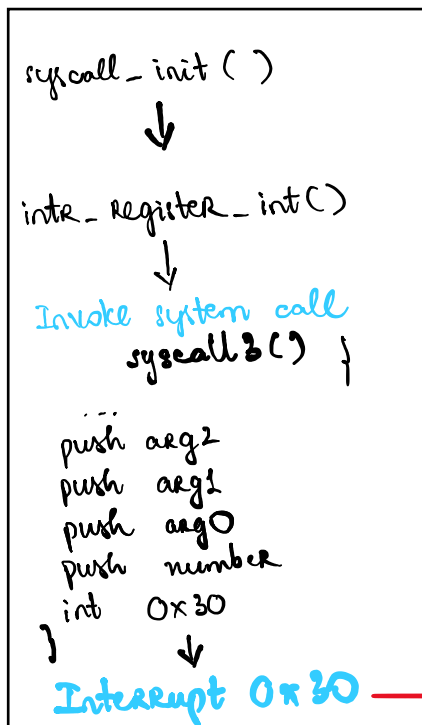 syscall_init ( )
intr_register_int()
Invoke system call
syscall3() }
...
push arg2
push arg1
push arg0
push number
int 0x30
}
Interrupt 0x30